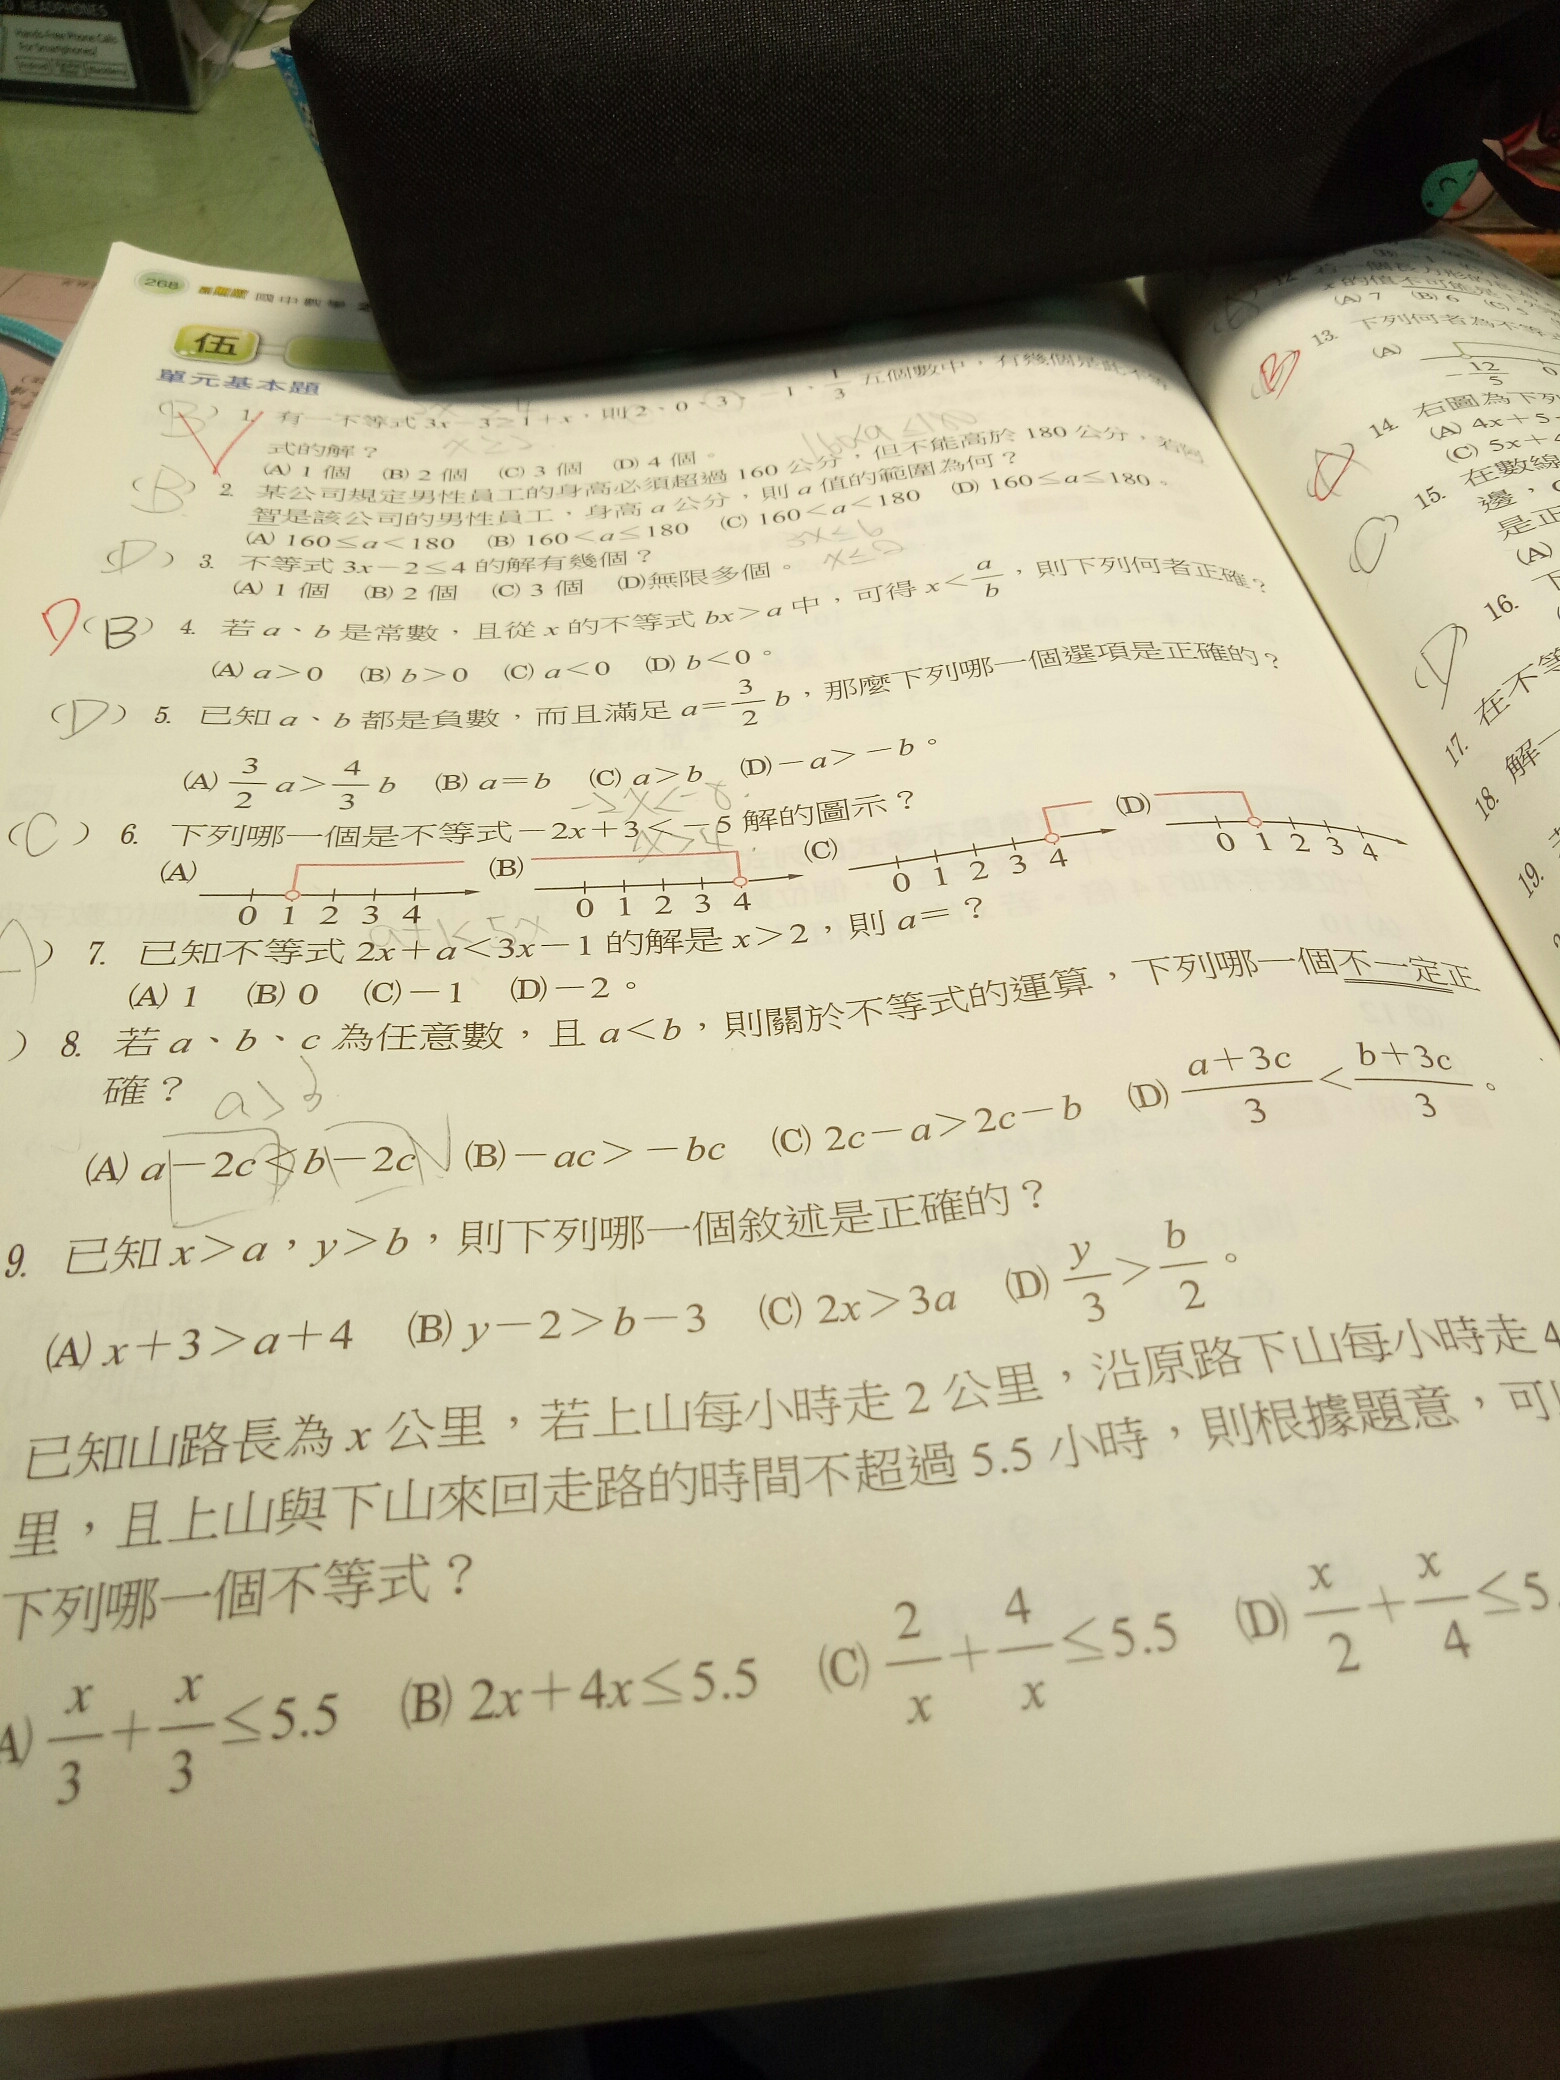 HEADPHONES
Hands-Free Phone Calls
For Smartphones!
268 國中數學 2
伍
單元基本題
(B) 1. 有一不等式 3x－3≥1＋x，則 2、0、3、－1、1/3 五個數中，有幾個是此不等
式的解？
x≥2
(A) 1 個 (B) 2 個 (C) 3 個 (D) 4 個。
160<a≤180
(B) 2. 某公司規定男性員工的身高必須超過 160 公分，但不能高於 180 公分，若阿
智是該公司的男性員工，身高 a 公分，則 a 值的範圍為何？
(A) 160≤a<180 (B) 160<a≤180 (C) 160<a<180 (D) 160≤a≤180。
3x≤6
x≤2
(D) 3. 不等式 3x－2≤4 的解有幾個？
(A) 1 個 (B) 2 個 (C) 3 個 (D)無限多個。
D (B) 4. 若 a、b 是常數，且從 x 的不等式 bx>a 中，可得 x<a/b，則下列何者正確？
(A) a>0 (B) b>0 (C) a<0 (D) b<0。
(D) 5. 已知 a、b 都是負數，而且滿足 a＝3/2 b，那麼下列哪一個選項是正確的？
(A) 3/2 a>4/3 b (B) a＝b (C) a>b (D)－a>－b。
(C) 6. 下列哪一個是不等式－2x＋3<－5 解的圖示？
x>4
(A) 0 1 2 3 4 (B) 0 1 2 3 4 (C) 0 1 2 3 4 (D) 0 1 2 3 4
a+1<5x
A) 7. 已知不等式 2x＋a<3x－1 的解是 x>2，則 a＝？
(A) 1 (B) 0 (C)－1 (D)－2。
) 8. 若 a、b、c 為任意數，且 a<b，則關於不等式的運算，下列哪一個不一定正
確？
(A) a－2c<b－2c (B)－ac>－bc (C) 2c－a>2c－b (D) a＋3c/3<b＋3c/3。
9. 已知 x>a，y>b，則下列哪一個敘述是正確的？
(A) x＋3>a＋4 (B) y－2>b－3 (C) 2x>3a (D) y/3>b/2。
已知山路長為 x 公里，若上山每小時走 2 公里，沿原路下山每小時走 4
里，且上山與下山來回走路的時間不超過 5.5 小時，則根據題意，可
下列哪一個不等式？
A) x/3＋x/3≤5.5 (B) 2x＋4x≤5.5 (C) 2/x＋4/x≤5.5 (D) x/2＋x/4≤5.
12
x 的值不可能是下
(A) 7 (B) 6 (C) 5
(B) 13. 下列何者為不等
(A) －12/5 0
(A) 14. 右圖為下列
(A) 4x＋5
(C) 5x＋
15. 在數線
邊，
是正
(A)
(D) 16.
17. 在不等
18. 解一
19.